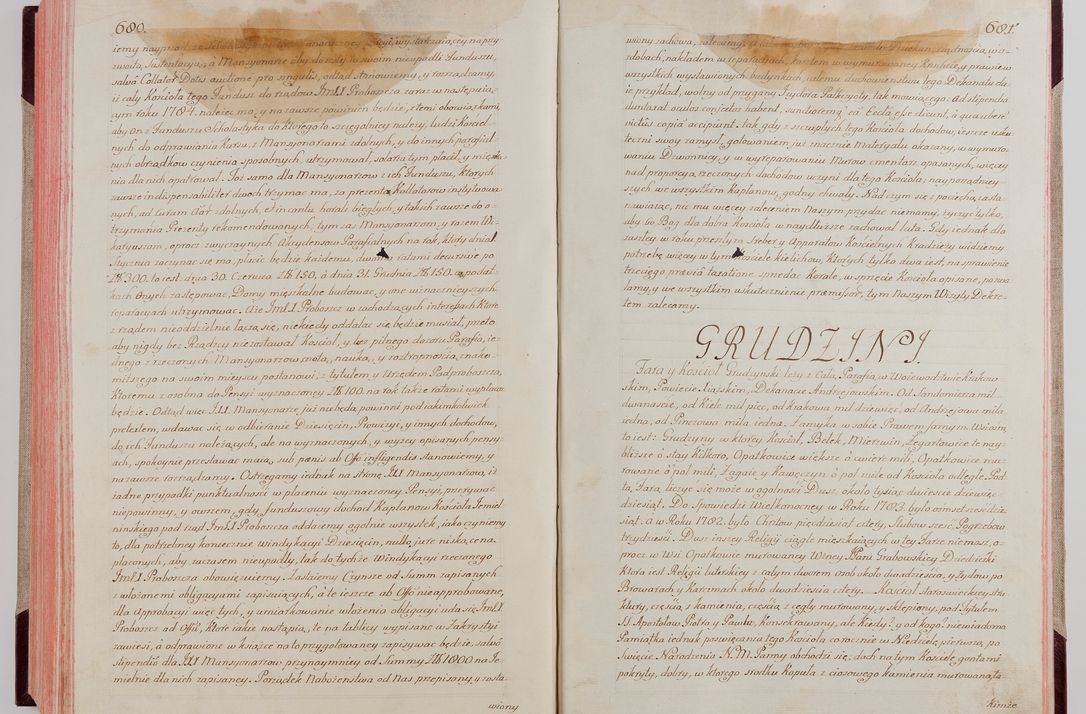 680.
zwoita Sustentacya, a Mansyonarze aby do zły w swoim nieupadli Funduszu,
salvâ Collatae Dotis auctione pro singulis, odtąd stanowiemy, y rozrządzamy,
iż cały Kościoła tego Fundusz do rządow JmX. Proboszcza zaraz w następuią-
cym roku 1784. należeć ma, y na zawsze powinien będzie, z temi obowiązkami,
aby On z Funduszu Scholastyka do ktorego to szczegolniey należy, ludzi Kościel-
nych do odprawiania Kursu, z Mansyonarzami zdalnych, y do innych parafial-
nych obrządkow czynienia sposobnych, utrzymował, solaria tym płacił, y mieszka-
nia dla nich opatrował. Toż samo dla Mansyonarzow z ich Funduszu, których
zawsze indispensabiliter dwoch trzymać ma, za prezentą Kollatorow instytuowa-
nych, ad curam Aar. zdolnych, et in cantu horali biegłych, y takich zawsze do o-
trzymania Prezenty rekomendowanych, tym za Mansyonarzom, y razem Wi-
karyuszom, oprocz zwyczaynych Akcydensow Parafialnych na rok, ktory dnia 1.
Stycznia zaczynać się ma, płacić będzie każdemu, dwoma ratami decursive po
Zł 300. to iest dnia 30. Czerwca Zł 150, a dnia 31. Grudnia Zł 150. w podat-
kach Onych zastępować, Domy mieszkalne budować, y one w inaczeyszych
reparacyach utrzymować. A że JmX. Proboszcz w zachodzących interesach Które
z rządem nieoddzielnie łączą się, niekiedy oddalać się będzie musiał, przeto
aby nigdy bez Rządzcy niezostawał Kościoł, y bez pilnego dozoru Parafia, ie-
dnego z rzeczonych Mansyonarzow, cnotą, nauką, y roztropnością, znako-
mitszego na swoim mieyscu postanowi, z tytułem y Urzędem Podproboszcza,
Ktoremu z osobna do Pensyi wyznaczoney Zł 100. na rok także ratami wypłacać
będzie. Odtąd więc XX. Mansyonarze, już niebędą powinni pod iakimkolwiek
pretextem, wdawać się, w odbieranie Dziesięcin, Prowizyi, y innych dochodow,
do ich Funduszu należących, ale na wyznaczonych, y wyżey opisanych pensy-
ach, spokoynie przestawać maią, sub pœnis ab Offo infligendis stanowiemy, y
na zawsze rozrządzamy. Ostrzegamy iednak na stronę XX Mansyonarzow, iż
żadne przypadki punktualności w płaceniu wyznaczoney Pensyi, przerywać
niepowinny, y owszem, gdy Funduszowy dochod Kapłanow Kościoła Jemiel-
ninskiego pod rząd JmX. Proboszcza oddaiemy ogolnie wszystek, iako czyniemy
to, dla potrzebney koniecznie windykacyi Dziesięcin, nullo jure niską cena
płaconych, aby zaczasem nieupadły, tak do tychże Windykacyi rzeczonego
JmX. Proboszcza obowięzuiemy. Zastaiemy Czynsze od Summ zapisanych
z włożonemi obligacyami zapisuiących, a te ieszcze ab Offo nieapprobowane,
dla Approbacyi więc tych, y umiarkowanie włożenia obligacyi uda się JmX.
Proboszcz ad Offiũ, które iakie nastąpią, te na tablicy wypisane w Zakrystyi
zawiesi, a odprawione w książce na to przygotowaney zapisywać będzie, salvo
stipendiô dla XX Mansyonarzow przynaymniey od Summy Zł 1000 na Je-
mielnie dla nich zapisaney. Porządek Nabożenstwa od Nas przepisany, y zosta-
wiony
681.
zdobach, nakładem w reparacyach, kosztem w wymurowaney Plebanii, y prawie w
wszystkich wystawionych budynkach całemu duchowieństwu tego Dekanatu da-
ie przykład, wolny od przygany Izydora Palkzyoty, tak mowiącego: Ad stipendia
duntaxat oculos conjectos habent, sanctiorem q̃ eâ Ecclã esse dicunt, à qua uberê
victûs copiâ accipiunt. tak gdy z szczupłych tego Kościoła dochodow, ieszcze usku-
teczni swoy zamysł, gotowaniem już znacznie materyału okazany, w wymuro-
waniu Dzwonnicy, y w wyreparowaniu Murow cmentarz opasanych, więcey
nad proporcyą, rzeczonych dochodow uczyni dla tego Kościoła, nayporządniey-
szych we wszystkim Kapłanow, godny chwały. Nad czym się z pociechą, zasta-
nawiaiąc, nic mu więcey zaleceniem Naszym przydać niemamy, życzyć tylko,
aby Go Bog dla dobra Kościoła w naydłuższe zachował lata. Gdy iednak dla
zaszłey w roku przeszłym Srebr y Apparatow Kościelnych Kradzieży widziemy
potrzebę więcey w tym Kościele kielichow, których tylko dwa iest, na sprawienie
trzeciego, przeviâ taxatione sprzedać Korale, w sprzęcie Kościoła opisane, pozwa-
lamy, y we wszystkim uskutecznienie præmissor, tym Naszym Wizyty Dekre-
tem zalecamy.
GRUDZINY.
Fara y Kościoł Grudzynski leży z Całą Parafią, w Woiewodztwie Krakow-
skim, Powiecie Xiążskim, Dekanacie Andrzejowskim. Od Sandomierza mil
dwanaście, od Kielc mil pięć, od Krakowa mil dziewięć, od Andrzejowa mila
iedna, od Pinczowa mila iedna. Zamyka w sobie Prawem farnym Wsiow,
to iest: Grudzyny w ktorey Kościoł, Belek, Mierzwin, Zegartowice te nay-
bliższe o stay Kilkoro, Opatkowice większe o cwierć mili, Opatkowice mu-
rowane o poł mili, Zagaie y Kawęczyn o poł mile od Kościoła odległe. Pod
tą Farą, liczyć się może w ogolności Dusz, około tysiąc dwieście dziewię-
dziesiąt. Do Spowiedzi Wielkanocney w Roku 1783. było osimset szesćdzie-
siąt. a w Roku 1782. było Chrztow pięcdziesiąt cztery, Slubow szesć, Pogrzebow
trzydzieści. Dusz inszey Religij ciągle mieszkaiących w tey Farze niemasz, o-
procz w Wsi Opatkowice murowaney WImcy Pani Grabowskiey Dziedziczki
Która iest Religii luterskiey z całym dworem osob około dwadzieścia, y Żydow po
Browarach y Karczmach około dwadzieścia cztery. Kościoł staroswieckiey stru-
ktury, częścią z kamienia, częścią z cegły murowany, y sklepiony, pod Tytułem
SS. Apostołow Piotra y Pawła, Konsekrowany, ale Kiedy? y od Kogo? niewiadomo
Pamiątka iednak poswięcania tego Kościoła corocznie w Niedzielę, pierwszą, po
Swięcie Narodzenia N. M. Panny obchodzi się; dach na tym Kościele gontami
pokryty, dobry, w ktorego srodku Kopuła z ciosowego kamienia murowana, ta-
kimże